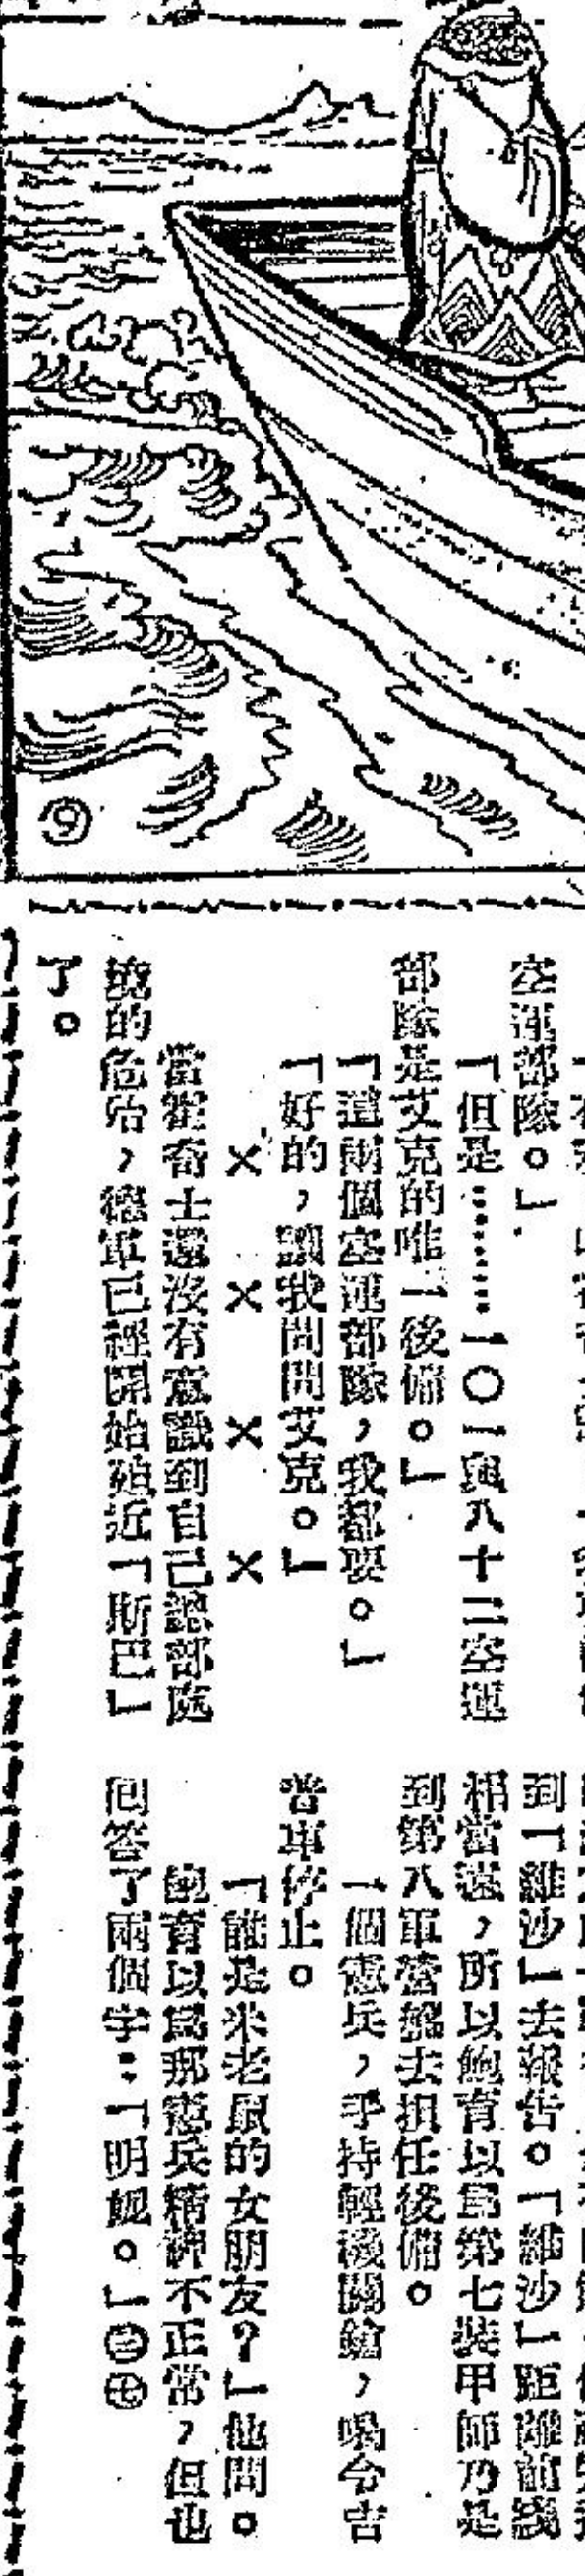 ⑨
空運部隊。」
「但是………一〇一與八十二空運
部隊是艾克的唯一後備。」
「這兩個空運部隊，我都要。」
「好的，讓我問問艾克。」
×　×　×　×
當霍奇士還沒有意識到自己總部處
境的危殆，德軍已經開始迫近「斯巴」
了。
到「維沙」去報告。「維沙」距離前綫
相當遠，所以鮑育以爲第七裝甲師乃是
到第八軍營總去担任後備。
一個憲兵，手持輕機關鎗，喝令吉
普車停止。
「誰是米老鼠的女朋友？」他問。
鮑育以爲那憲兵精神不正常，但也
回答了兩個字：「明妮。」